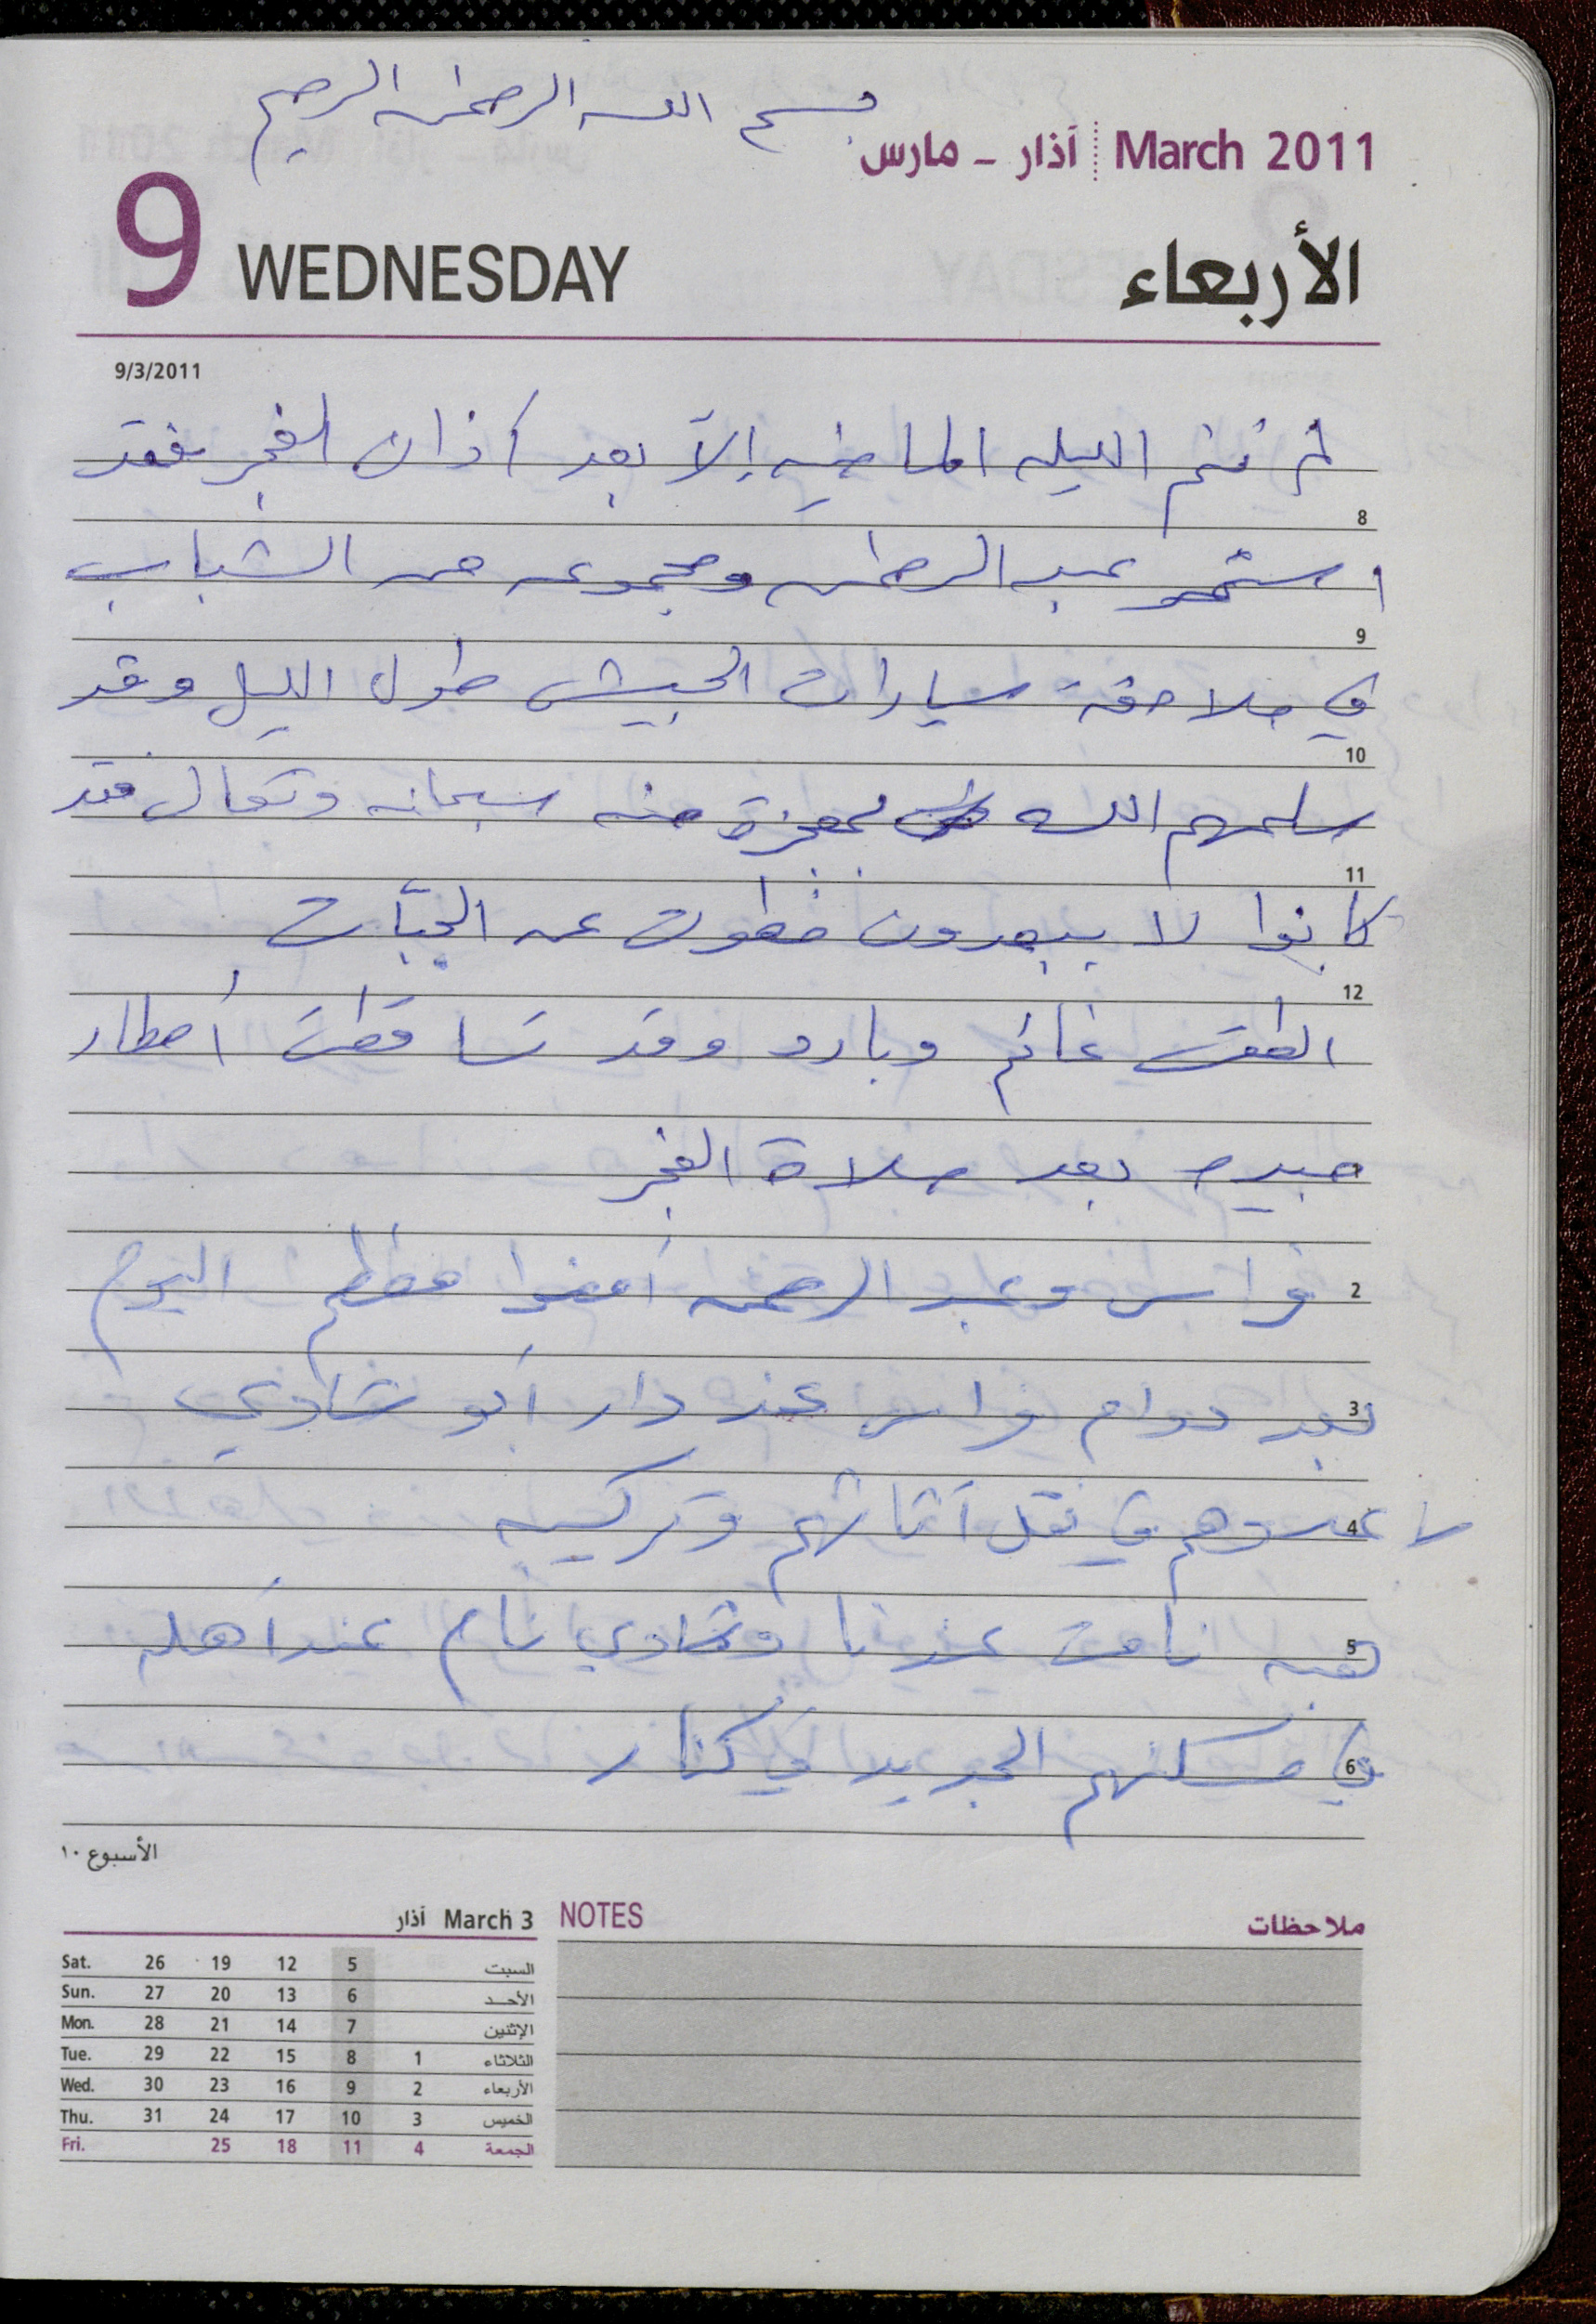 بسم الله الرحمن الرحيم
March 2011 آذار - مارس
9 WEDNESDAY الأربعاء
9/3/2011
لم ننم الليله الماضيه إلا بعد أذان الفجر فقد
8
استمر عبد الرحمن ومجموعه من الشباب
9
في ملاحقة سيارات الجيش طول الليل وقد
10
سلمهم الله بمعجزة منه سبحانه وتعالى فقد
11
كانوا لا يبعدون خطوات عن الجيبات
12
الطقس غائم وبارد وقد تساقطت أمطار
جيده بعد صلاة الفجر
2
فراس وعبد الرحمن أمضوا معظم اليوم
3
بعد دوام فراس عند دار أبو شادي
4
ساعدوهم في نقل أثاثهم وتركيبه
5
هبه نامت عندنا وشادي نام عند أهله
6
في مسكنهم الجديد في كنار
الأسبوع ١٠
March 3 آذار
NOTES ملاحظات
Sat. 26 19 12 5 السبت
Sun. 27 20 13 6 الأحد
Mon. 28 21 14 7 الإثنين
Tue. 29 22 15 8 1 الثلاثاء
Wed. 30 23 16 9 2 الأربعاء
Thu. 31 24 17 10 3 الخميس
Fri. 25 18 11 4 الجمعة